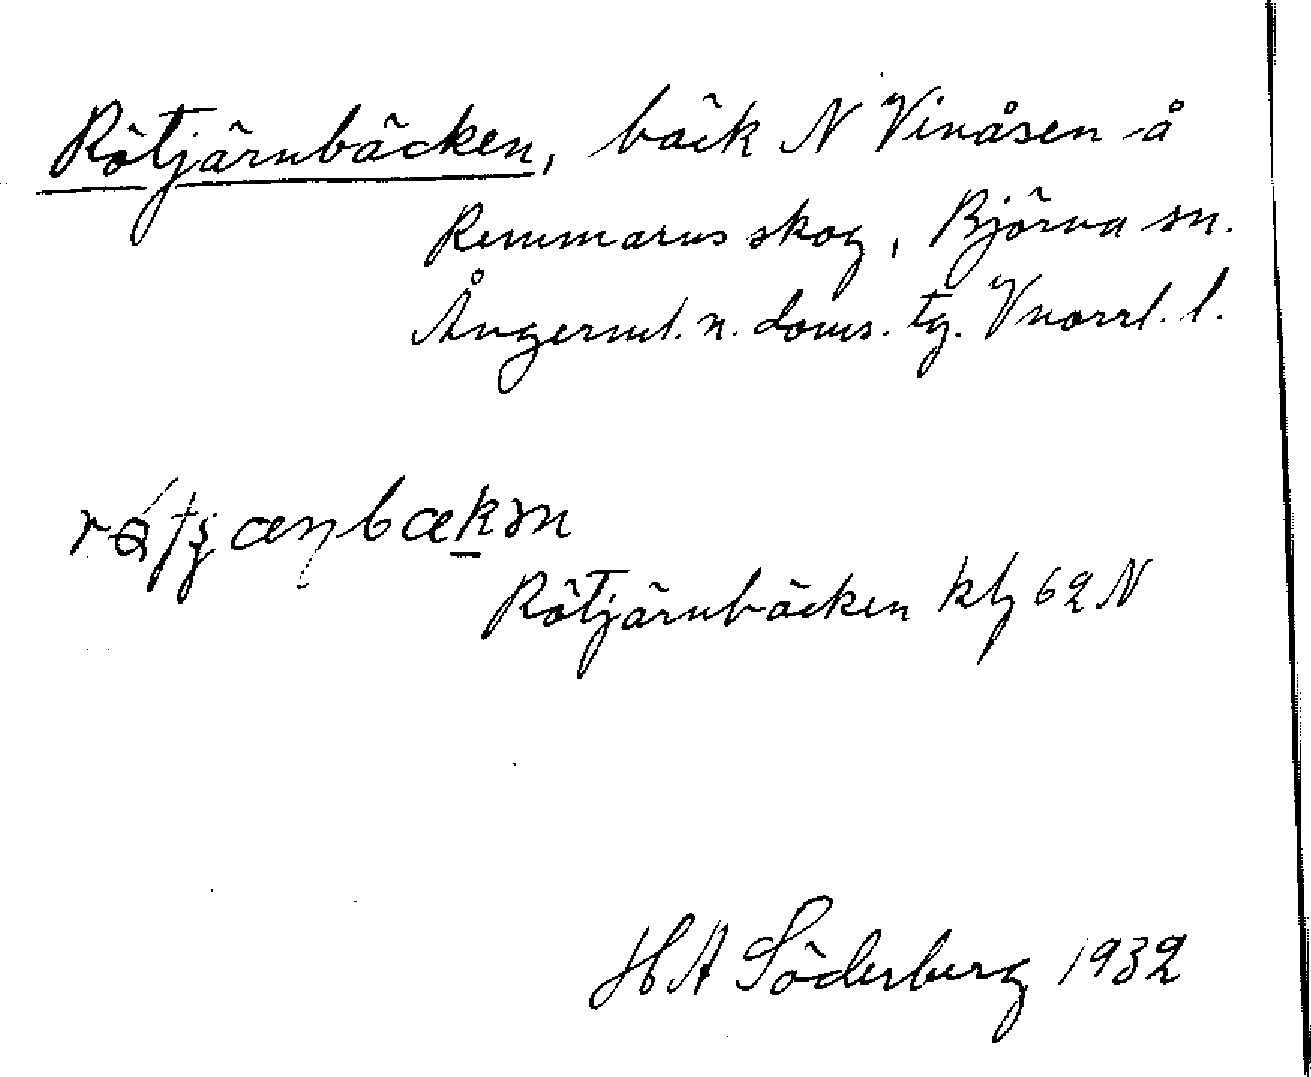 Rötjärnbäcken, bäck N Vinåsen å
Remmarns skog, Björna sn.
Ångerml. n. doms. tg. Vnorrl. l.
Rötjärnbäcken kbl 62 N
H A Söderberg 1932